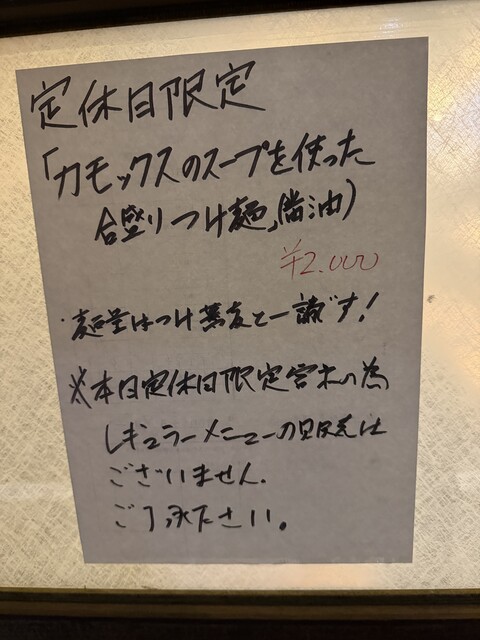 定休日限定
「カモックスのスープを使った
合盛りつけ麺」(醤油)
¥2.000
・麺量はつけ蕎麦と一諸です!
※本日定休日限定営業の為
レギュラーメニューの販売は
ございません.
ご了承下さい。